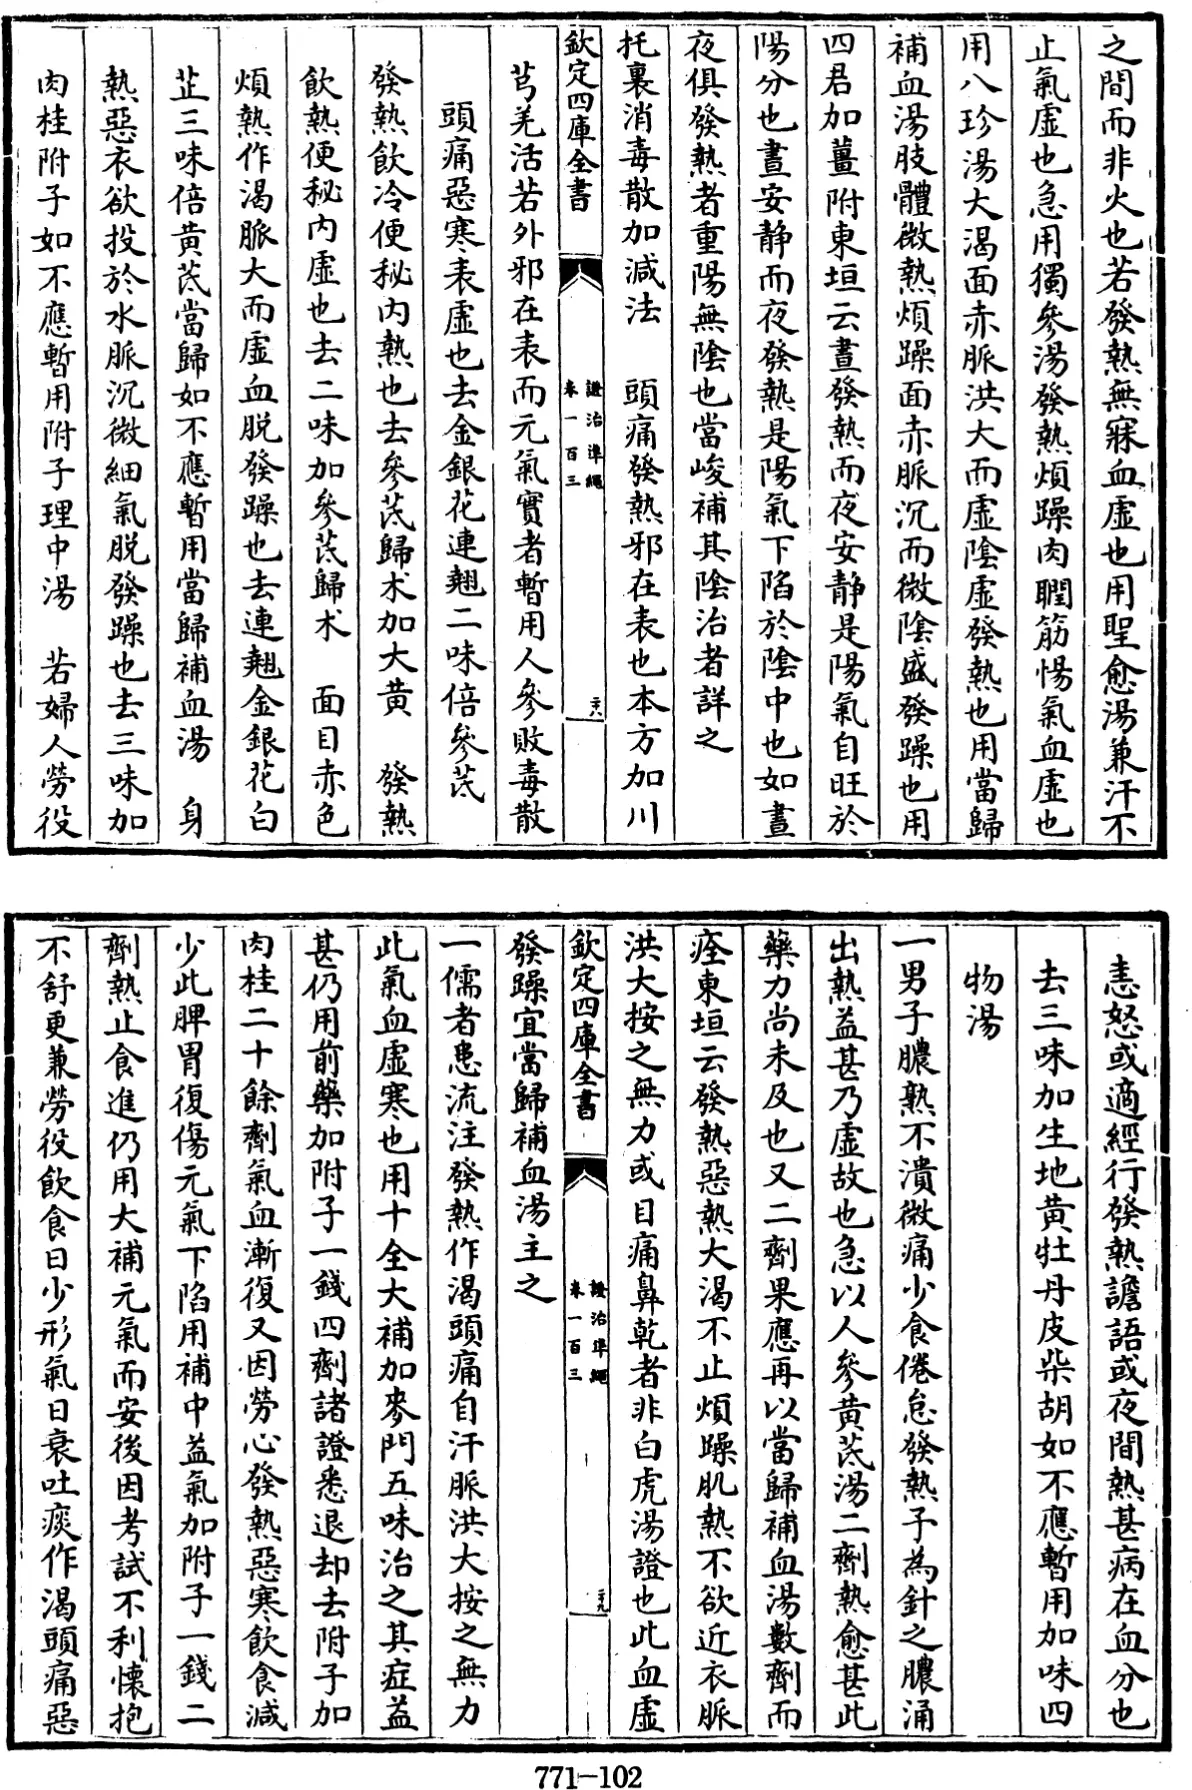 之間而非火也若發熱無寐血虛也用聖愈湯兼汗不
止氣虛也急用獨參湯發熱煩躁肉瞤筋惕氣血虛也
用八珍湯大渴面赤脈洪大而虛陰虛發熱也用當歸
補血湯肢體微熱煩躁面赤脈沉而微陰盛發躁也用
四君加薑附東垣云晝發熱而夜安靜是陽氣自旺於
陽分也晝安靜而夜發熱是陽氣下陷於陰中也如晝
夜俱發熱者重陽無陰也當峻補其陰治者詳之
托裏消毒散加減法　頭痛發熱邪在表也本方加川
欽定四庫全書
證治準繩
卷一百三
二十八
芎羌活若外邪在表而元氣實者暫用人參敗毒散
頭痛惡寒表虛也去金銀花連翹二味倍參芪
發熱飲冷便秘內熱也去參芪歸朮加大黃　發熱
飲熱便秘內虛也去二味加參芪歸朮　面目赤色
煩熱作渴脈大而虛血脫發躁也去連翹金銀花白
芷三味倍黃芪當歸如不應暫用當歸補血湯　身
熱惡衣欲投於水脈沉微細氣脫發躁也去三味加
肉桂附子如不應暫用附子理中湯　若婦人勞役
恚怒或適經行發熱譫語或夜間熱甚病在血分也
去三味加生地黃牡丹皮柴胡如不應暫用加味四
物湯
一男子膿熟不潰微痛少食倦怠發熱予為針之膿涌
出熱益甚乃虛故也急以人參黃芪湯二劑熱愈甚此
藥力尚未及也又二劑果應再以當歸補血湯數劑而
痊東垣云發熱惡熱大渴不止煩躁肌熱不欲近衣脈
洪大按之無力或目痛鼻乾者非白虎湯證也此血虛
欽定四庫全書
證治準繩
卷一百三
二十九
發躁宜當歸補血湯主之
一儒者患流注發熱作渴頭痛自汗脈洪大按之無力
此氣血虛寒也用十全大補加麥門五味治之其症益
甚仍用前藥加附子一錢四劑諸證悉退却去附子加
肉桂二十餘劑氣血漸復又因勞心發熱惡寒飲食減
少此脾胃復傷元氣下陷用補中益氣加附子一錢二
劑熱止食進仍用大補元氣而安後因考試不利懷抱
不舒更兼勞役飲食日少形氣日衰吐痰作渴頭痛惡
771-102